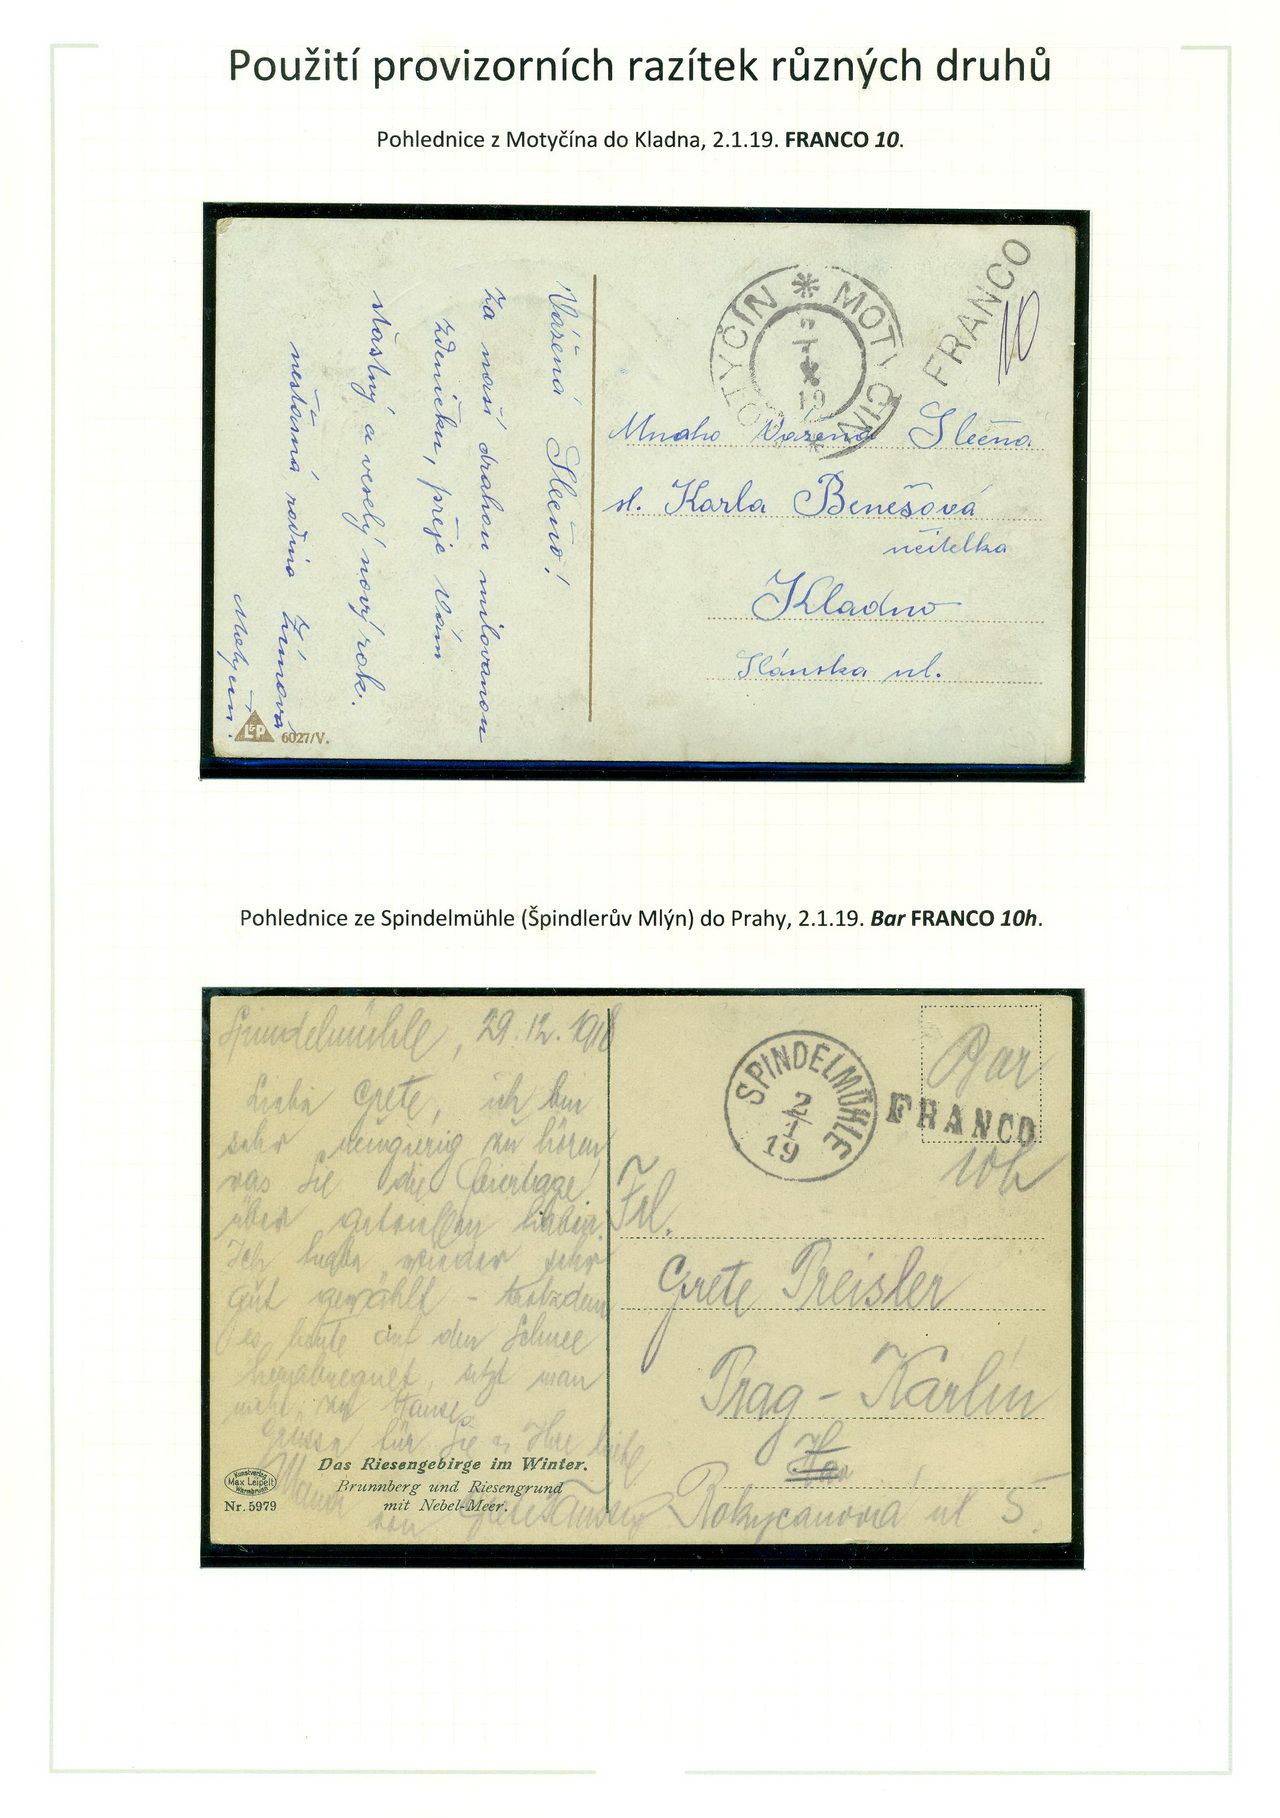 Použití provizorních razítek různých druhů
Pohlednice z Motyčína do Kladna, 2.1.19. FRANCO 10.
Vážená Slečno!
Za naší drahou milovanou
Zdeničku, přeje Vám
šťastný a veselý nový rok.
nešťastná rodina Zímova
Motyčín.
L&P
6027/V.
MOTYČÍN * MOTYČÍN *
2
1
19
FRANCO
10
Mnoho Vážená Slečna
sl. Karla Benešová
učitelka
Kladno
Slánska ul.
Pohlednice ze Spindelmühle (Špindlerův Mlýn) do Prahy, 2.1.19. Bar FRANCO 10h.
Spindelmühle, 29.12.1918
Liebe Grete, ich bin
sehr neugierig zu hören
was Sie die Feiertage
über getroffen haben.
Ich habe wieder sehr
gut gewählt - trotzdem
es heute auf den Schnee
herabregnet, sitzt man
nicht zu Hause.
Grüsse für Sie u. Ihre
von Grete
Das Riesengebirge im Winter.
Brunnberg und Riesengrund
mit Nebel-Meer.
Kunstverlag
Max Leipelt
Warmbrunn
Nr. 5979
SPINDELMÜHLE
2
1
19
Bar
FRANCO
10h
Frl.
Grete Preisler
Prag - Karlín
Rokycanova ul 5.